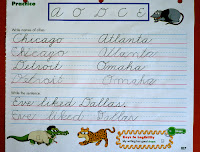 Practice
A O D C E
Write names of cities.
Chicago Atlanta
Chicago Atlanta
Detroit Omaha
Detroit Omaha
Write the sentence.
Eve liked Dallas.
Eve liked Dallas